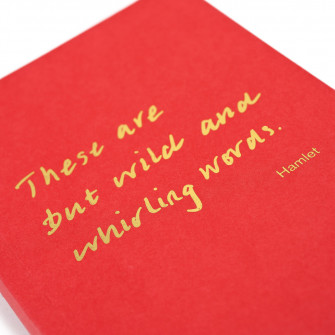 These are
but wild and
whirling words.
Hamlet